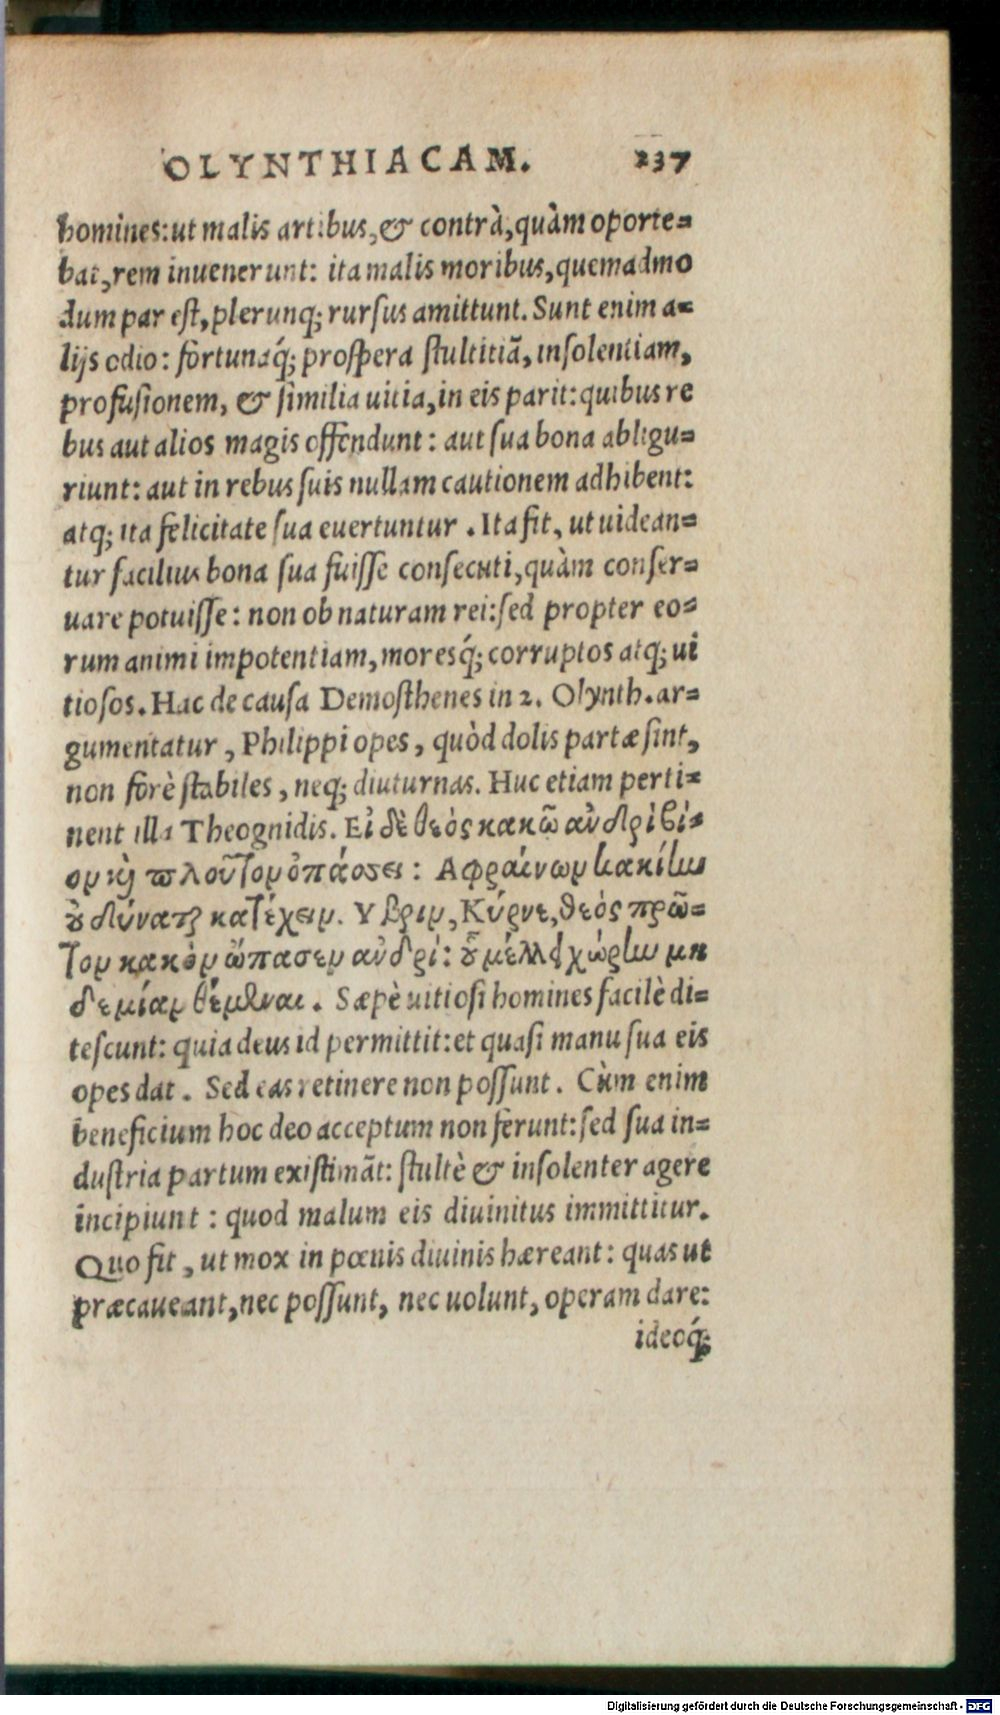 OLYNTHIACAM. 237
homines: ut malis artibus, & contrà, quàm oporte=
bat, rem inuenerunt: ita malis moribus, quemadmo
dum par est, plerunq; rursus amittunt. Sunt enim a=
lijs odio: fortunaq́; prospera stultitiã, insolentiam,
profusionem, & similia uitia, in eis parit: quibus re
bus aut alios magis offendunt: aut sua bona abligu=
riunt: aut in rebus suis nullam cautionem adhibent:
atq; ita felicitate sua euertuntur. Ita fit, ut uidean=
tur facilius bona sua fuisse consecuti, quàm conser=
uare potuisse: non ob naturam rei: sed propter eo=
rum animi impotentiam, moresq́; corruptos atq; ui
tiosos. Hac de causa Demosthenes in 2. Olynth. ar=
gumentatur, Philippi opes, quòd dolis partæ sint,
non forè stabiles, neq; diuturnas. Huc etiam perti=
nent illa Theognidis. Εἰ δὲ θεὸς κακῶ ἀνδρὶ βί=
ον κὶ πλοῦτον ὀπάσσει: Αφραίνων κακίην
οὐ δύναται κατέχειν. Υβριν, Κύρνε, θεὸς πρῶ=
τον κακὸν ὤπασεν ἀνδρὶ: οὗ μέλλει χώρην μη
δεμίαν θέμεναι. Sæpè uitiosi homines facilè di=
tescunt: quia deus id permittit: et quasi manu sua eis
opes dat. Sed eas retinere non possunt. Cùm enim
beneficium hoc deo acceptum non ferunt: sed sua in=
dustria partum existimãt: stultè & insolenter agere
incipiunt: quod malum eis diuinitus immittitur.
Quo fit, ut mox in pœnis diuinis hæreant: quas ut
præcaueant, nec possunt, nec uolunt, operam dare:
ideoq́;
Digitalisierung gefördert durch die Deutsche Forschungsgemeinschaft - DFG